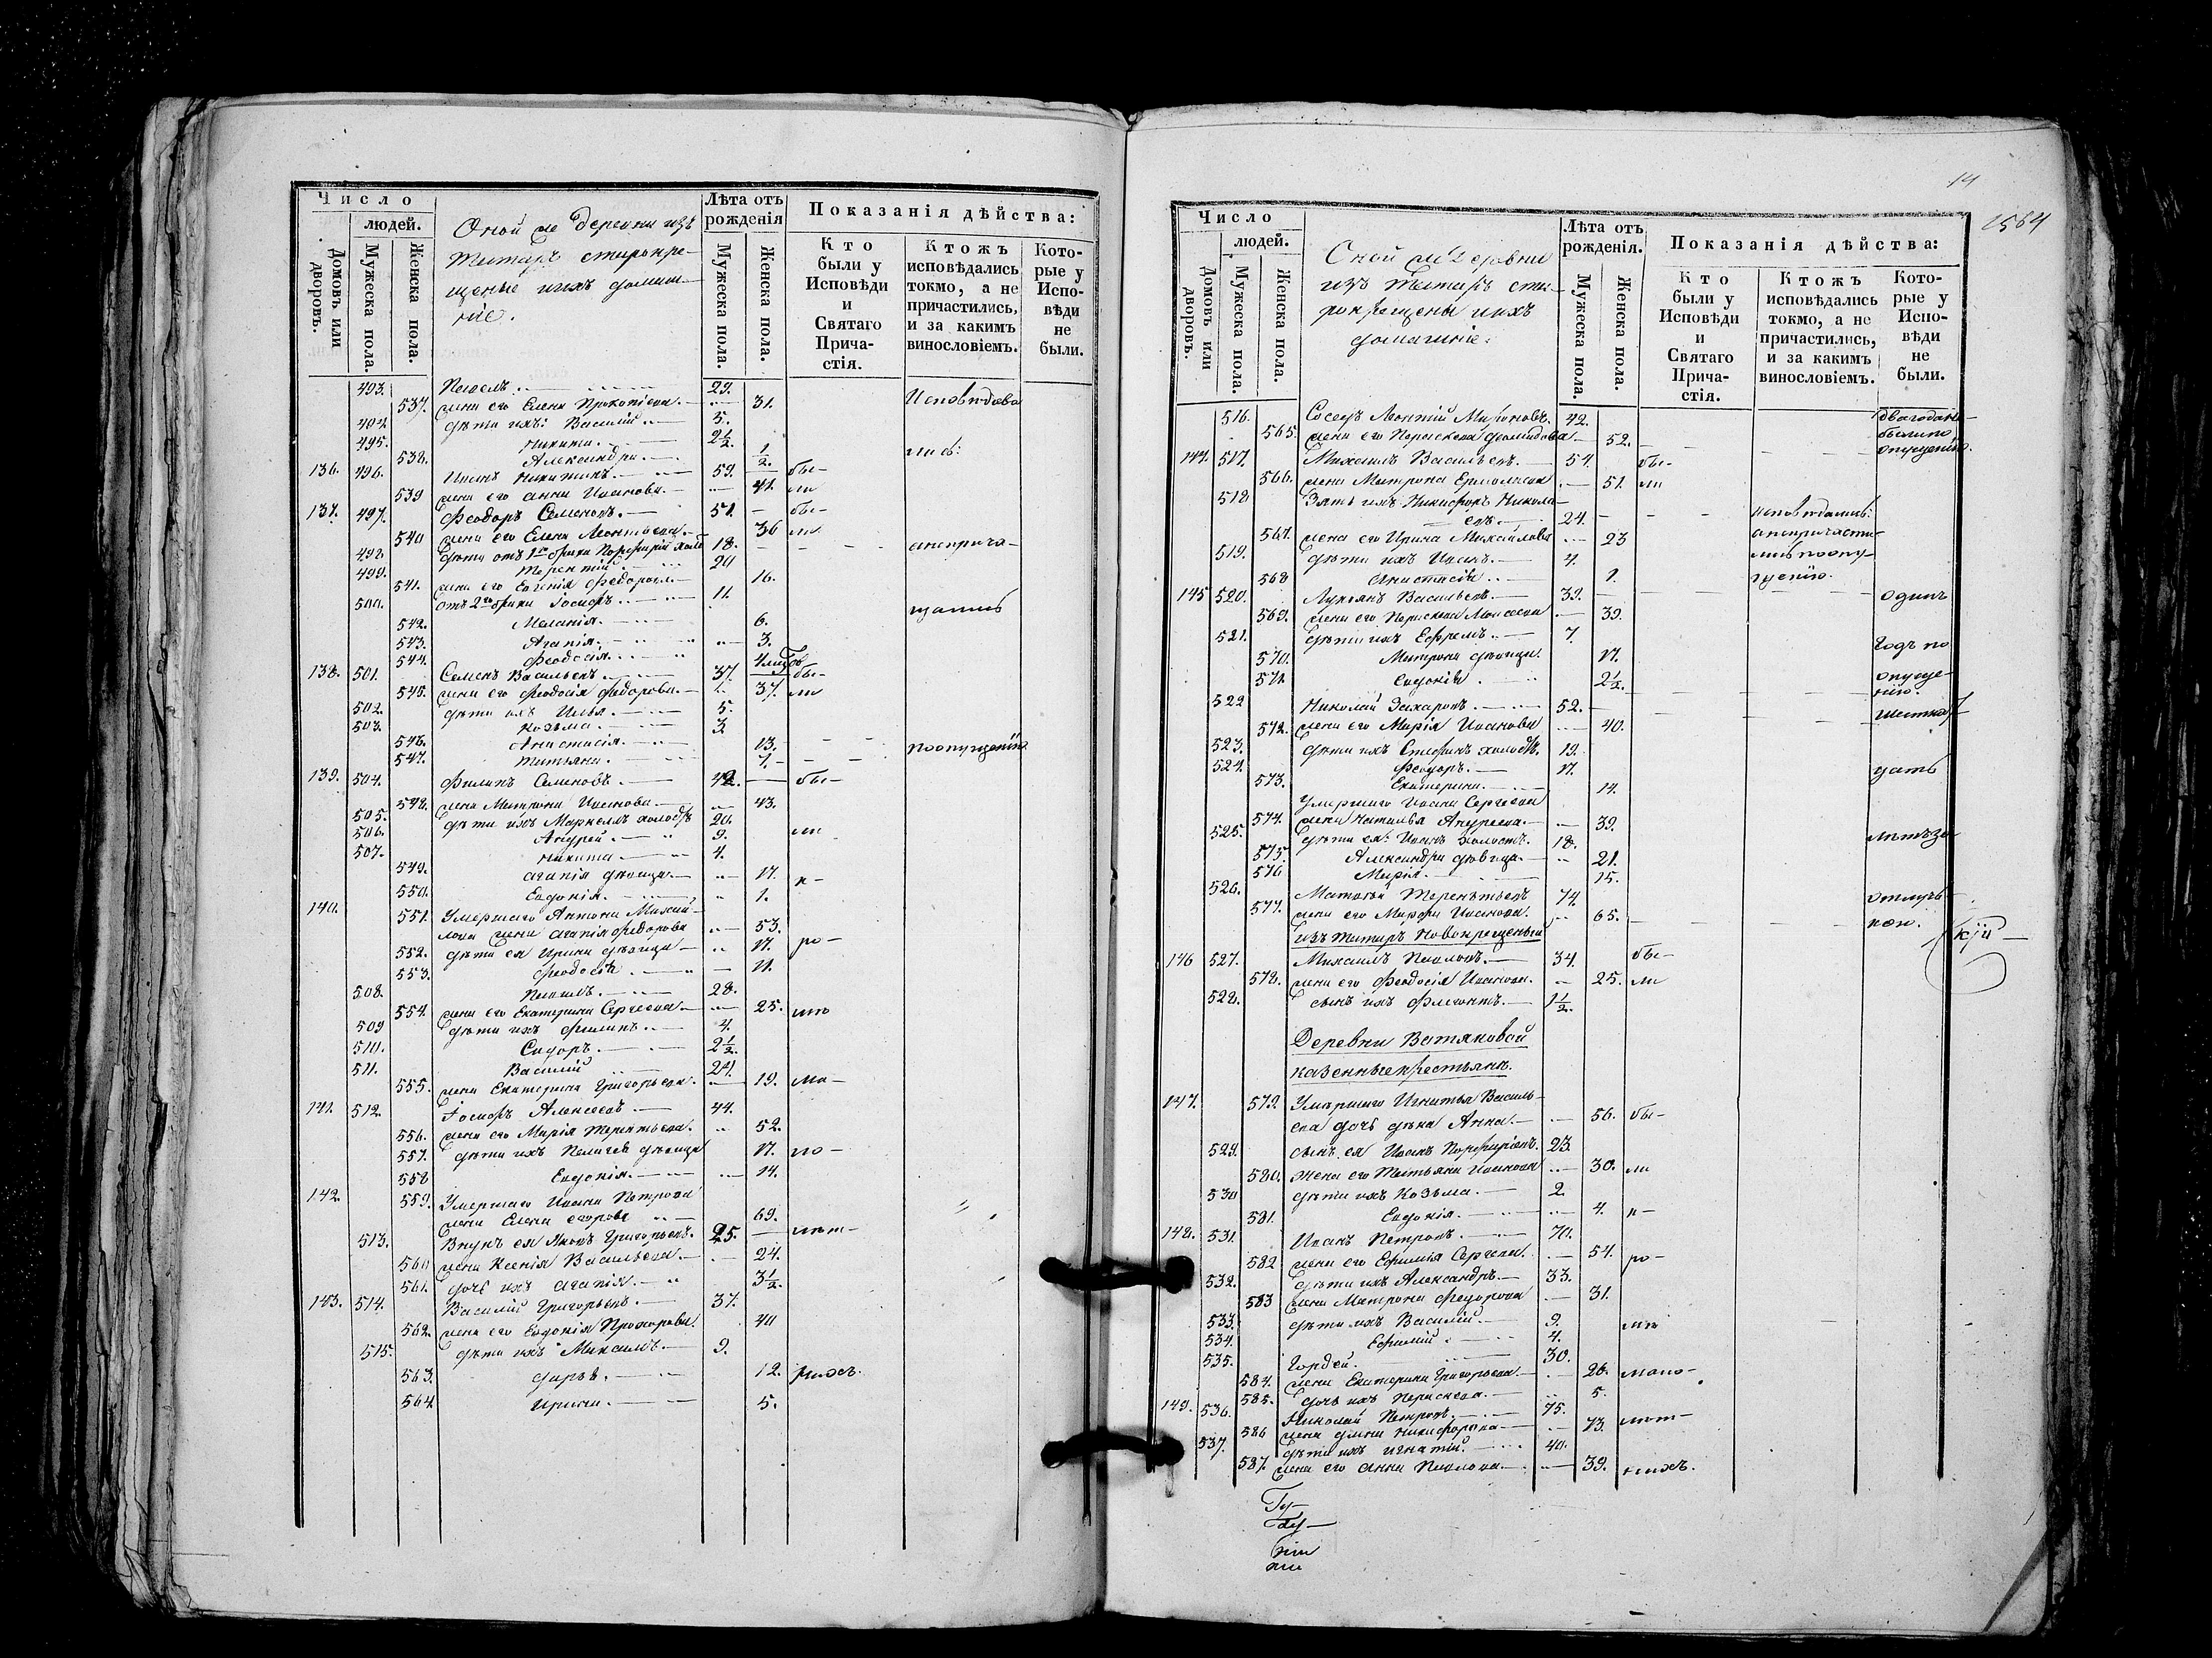 Число
людей.
Домовъ или дворовъ.
Мужеска пола.
Женска пола.
Оной же деревни изъ
татаръ старокре-
щеные ихъ домаш-
ніе.
Лѣта отъ рожденія
Мужеска пола.
Женска пола.
Показанія дѣйства:
Кто были у Исповѣди и Святаго Прича-стія.
Ктожъ исповѣдались токмо, а не причастились, и за какимъ винословіемъ.
Кото-рые у Испо-вѣди не были.
493. Павелъ 29.
537. жена его Елена Прокопіева 31. Исповѣдова
494. дѣти ихъ: Василій 5.
495. Никита 2½.
538. Александра ½. лись:
136. 496. Иванъ Никитинъ 59. бы-
539 жена его Анна Иванова 41. ли
137. 497. Феодоръ Семеновъ 51. бы-
540 жена его Елена Леонтьева 36 ли
498. дѣти отъ 1го брака Порфирій холо 18. анеприча-
499. Терентій 20
541. жена его Евгенія Федорова 16.
500. отъ 2го брака Іосифъ 11. щались
542. Меланія 6.
543. Агапія 3.
544. Феодосія
138. 501. Семенъ Васильевъ 37. бы-
545. жена его Феодосія Федорова 37. ли
502. дѣти ихъ Илья 5.
503. Козьма 3
546. Анастасія 13. поопущенію
547. Татьяна 1.
139. 504. Филипъ Семеновъ 42. бы-
548. жена Матрона Иванова 43.
505. дѣти ихъ Маркеллъ холостъ 20.
506. Андрей 9. ли
507. Никита 4.
549. Агапія дѣвица 17. к-
550. Евдокія 1.
140. 551. Умершаго Антона Михай-
лова жена Агапія Федорова 53.
552. дѣти ея Ирина дѣвица 17. ро-
553. Феодосія 11.
508. Павелъ 28.
554. жена его Екатерина Сергеева 25. мѣ
509 дѣти ихъ Филипъ 4.
510. Сидоръ 2½.
511. Василій 21.
555. жена Екатерина Григорьева 19. ма-
141. 512. Іосифъ Алексеевъ 44.
556. жена его Марія Терентьева 52.
557. дѣти ихъ Пелагея дѣвица 17. ло-
558 Евдокія 14.
142. 559. Умершаго Ивана Петрова
жена Елена Егорова 69.
513. Внукъ ея Яковъ Григорьевъ 25. лѣт-
560 жена Ксенія Васильева 24.
561. дочь ихъ Агапія 3½.
143. 514. Василій Григорьевъ 37.
562. жена его Евдокія Прохорова 40
515. дѣти ихъ Михаилъ 9.
563. Дарья 12. нихъ.
564. Ирина 5.
14
1564
Число
людей.
Домовъ или дворовъ.
Мужеска пола.
Женска пола.
Оной же деревни
изъ татаръ ста-
рокрещены ихъ
домашніе:
Лѣта отъ рожденія.
Мужеска пола.
Женска пола.
Показанія дѣйства:
Кто были у Исповѣди и Святаго Прича-стія.
Ктожъ исповѣдались токмо, а не причастились, и за какимъ винословіемъ.
Кото-рые у Испо-вѣди не были.
516. Сосѣдъ Леонтій Мироновъ 42. два года не
565. жена его Параскева 52. были по
144. 517. Михаилъ Васильевъ 54. бы- опущенію.
566. жена Матрона Ермолаева 51. ли
518 Зять ихъ Никифоръ Никола-
евъ 24. исповѣдались:
567. жена его Ирина Михайлова 23 анепричасти-
519. дѣти ихъ Иванъ 4. лись поопу-
568 Анастасія 1. щенію.
145 520. Лукьянъ Васильевъ 39. одинъ
569. жена его Параскева Моисеева 39.
521. дѣти ихъ Ефремъ 7. годъ по
570. Матрона дѣвица 17.
571. Евдокія 2½. опуще-
нію.
522 Николай Захаровъ 52.
572. жена его Марія Иванова 40.
523. дѣти ихъ Стефанъ холостъ 19.
524. Феодоръ 17. цать
573. Екатерина 14.
Умершаго Ивана Сергеева
574. жена Наталья Андреева 39.
525. дѣти ея: Иванъ холостъ 18. лѣтъ за
575. Александра дѣвица 21.
576 Марія 15.
526. Матвѣй Терентьевъ 74. отлуч-
577. жена его Марфа Иванова 65. кою.
изъ татаръ новокрещеный
146 527. Михаилъ Павловъ 34. бы-
578. жена его Феодосія Иванова 25. ли
528. сынъ ихъ Флегонтъ 1½.
Деревни Вотяковой
казенныекрестьяне.
147. 579. Умершаго Игнатья Василь-
ева дочь дѣвка Анна 56. бы-
529. сынъ ея Иванъ Порфирьевъ 23.
580. жена его Татьяна Иванова 30. ли
530 дѣти ихъ Козьма 2.
581. Евдокія 4. к-
148. 531. Иванъ Петровъ 70.
582 жена его Ефимія Сергеева 54. ро-
532. дѣти ихъ Александръ 33.
583 жена Матрона Федорова 31.
533. дѣти ихъ Василій 9. мѣ
534. Ефимій 4.
535. Гордей 30.
584. жена Екатерина Григорьева 26. мало-
585. дочь ихъ Параскева 5.
149. 536. Николай Петровъ 75.
586 жена Никифорова 73. лѣт-
537. дѣти ихъ Игнатій 40.
587. жена его Анна Павлова 39. нихъ.